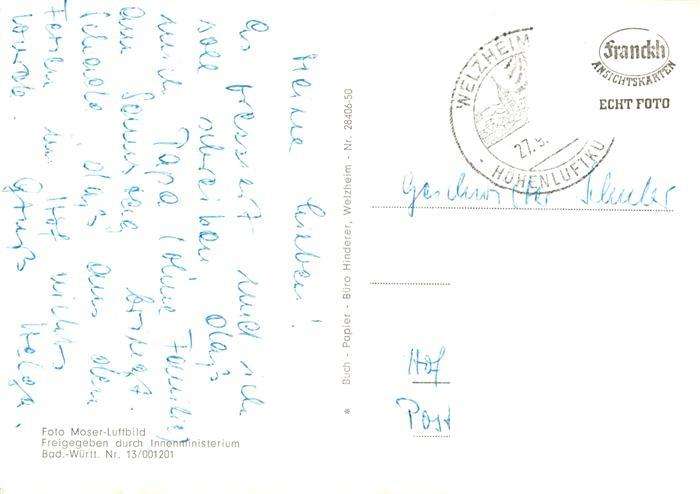 Meine Lieben!
Es pressiert und ich
soll schreiben, daß
mich Papa (ohne Familie)
am Sonntag bringt.
Schade, daß aus den
Ferien in Hof nichts
wurde. Gruß Helga.
Foto Moser-Luftbild
Freigegeben durch Innenministerium
Bad.-Württ. Nr. 13/001201
* Buch - Papier - Büro Hinderer, Welzheim - Nr. 28406-50
WELZHEIM
27.9.
- HÖHENLUFTKU
Franckh
ANSICHTSKARTEN
ECHT FOTO
Geschwister Schuler
Hof
Post